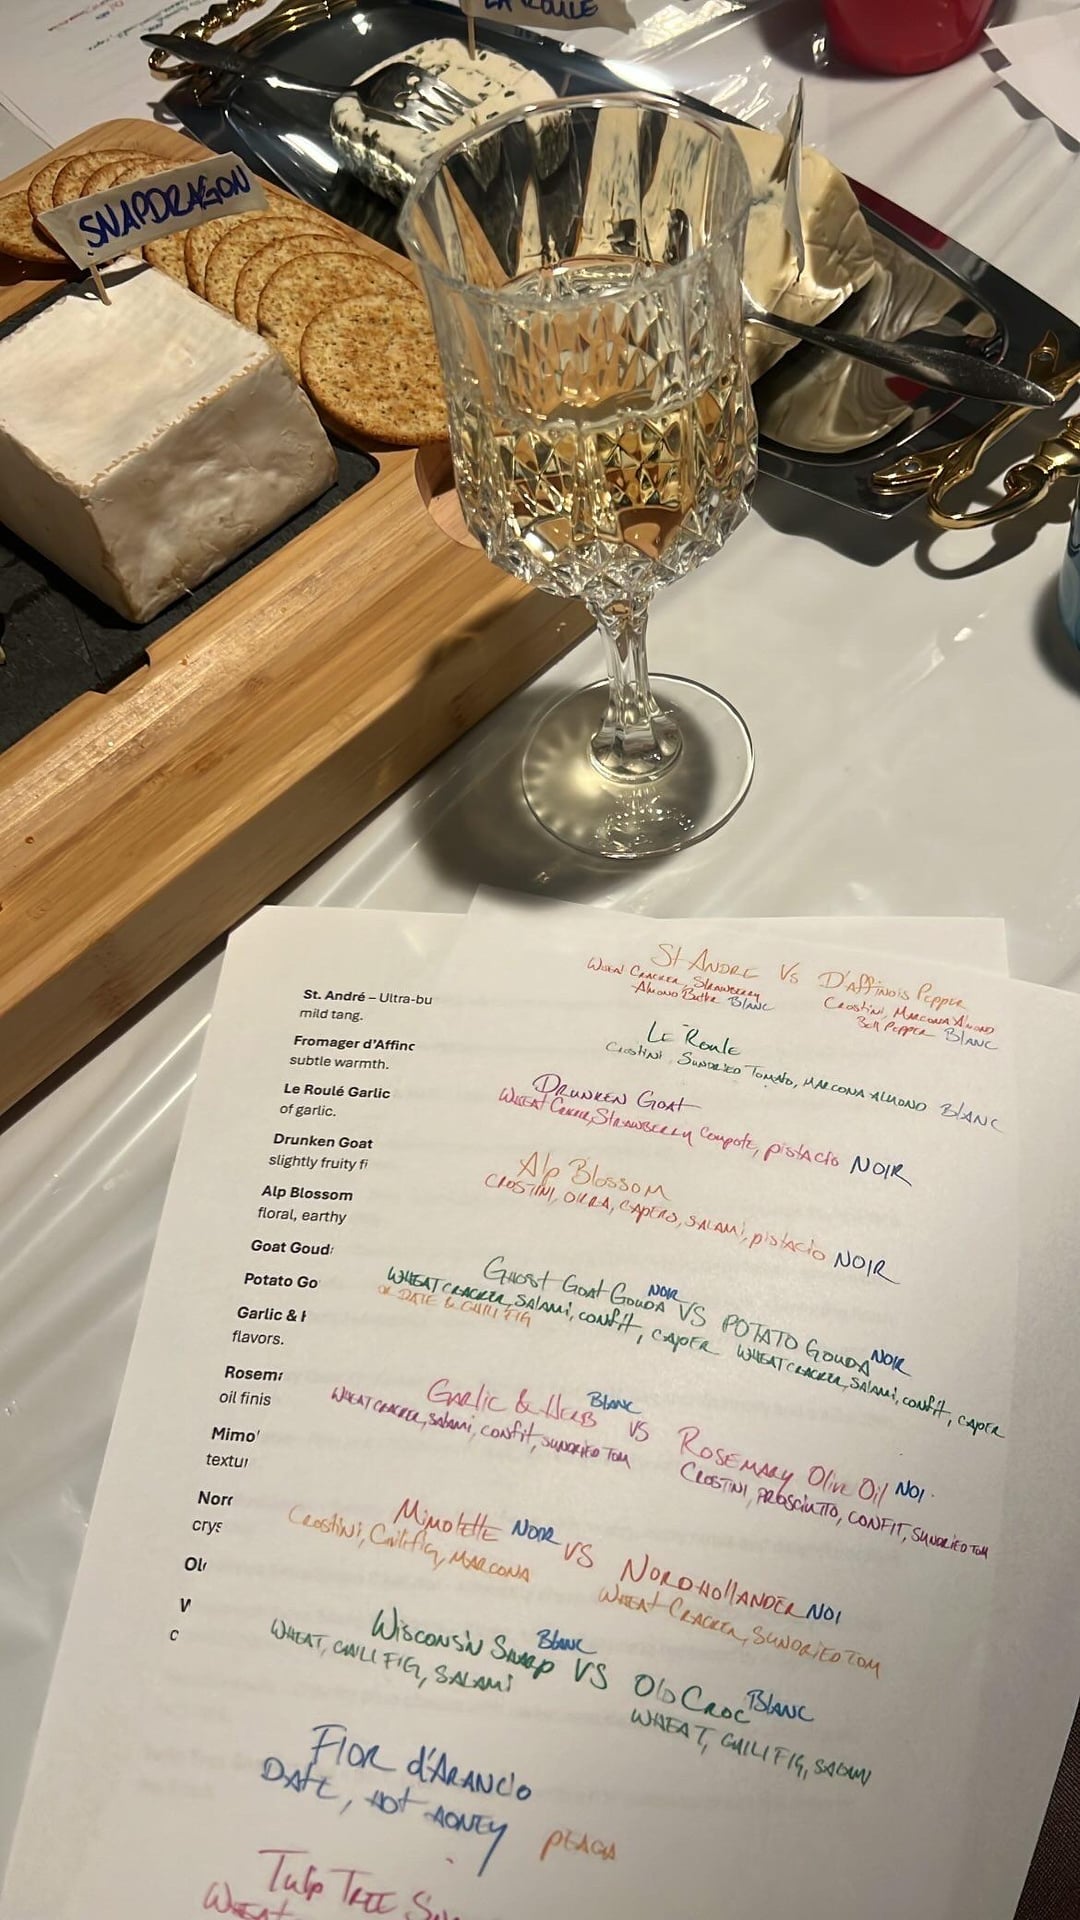 LA ROULE
SNAPDRAGON
St. André – Ultra-bu
mild tang.
Fromager d'Affinc
subtle warmth.
Le Roulé Garlic
of garlic.
Drunken Goat
slightly fruity fi
Alp Blossom
floral, earthy
Goat Goud
Potato Go
Garlic & H
flavors.
Rosema
oil finis
Mimo
textur
Nor
crys
Ol
St ANDRE VS D'Affinois Pepper
Wheat Cracker, Strawberry
Almond Butter BLANC
Crostini, Marcona Almond
Bell Pepper BLANC
Le Roule
Crostini, Sundried Tomato, Marcona Almond BLANC
Drunken Goat
Wheat Cracker, Strawberry Compote, pistacio NOIR
Alp Blossom
CROSTINI, OKRA, CAPERS, SALAMI, pistacio NOIR
Ghost Goat Gouda NOIR VS POTATO Gouda NOIR
WHEAT CRACKER, SALAMI, CONFIT, CAPER
OR DATE & CHILI FIG
WHEAT CRACKER, SALAMI, CONFIT, CAPER
Garlic & Herb BLANC VS Rosemary Olive Oil NOI
WHEAT CRACKER, SALAMI, CONFIT, SUNDRIED TOM
CROSTINI, PROSCIUTTO, CONFIT, SUNDRIED TOM
Mimolette NOIR VS NORDHOllANDER NOI
Crostini, Chilifig, MARCONA
WHEAT CRACKER, SUNDRIED TOM
Wisconsin Sharp BLANC VS Old Croc BLANC
WHEAT, CHILI FIG, SALAMI
WHEAT, CHILI FIG, SALAMI
FIOR d'ARANCIO
DATE, HOT HONEY PEACH
Tulip TREE
WHEAT